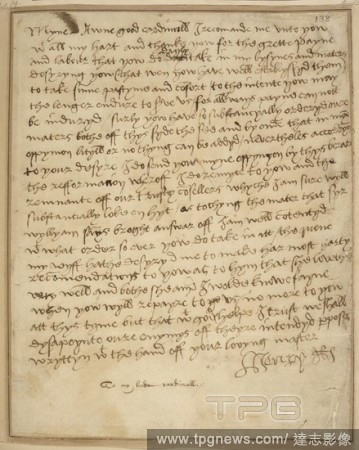 138
Myne Awne good cardinall I recomande me unto yow
wt all my hart and thanke yow for the grette payne
and labour that yow do dayly take in my bysynes and maters
desyryng yow (that wen yow have well establyssyd them)
to take summe pastyme and cofort to the intente yow may
the lenger endure to serve us for allways payne can not
be induryd surly yow have so substancyally orderyd oure
maters bothe off thys syde the see and byond that in myne
oppynion lityll or no thyng can be addyd nevertheles accordyng
to your desyre I do send yow myne oppynyon by thys berar
the refformacion wheroff I do remytte to yow and the
remnante off our trusty cosellers whyche I am sure wyll
substantially loke on hyt as tochyng the mater that syr
wyllyam says broght answar off I am well cotentyd
wt what order so ever yow do take in itt the quene
my wyff hathe desyryd me to make har most harty
recomendations to yow as to hym that she lovethe
very well and bothe she and I wolde knowe fayne
when yow wyll repayre to us no more to yow
att thys tyme but that wt gods helpe I trust we shall
dysapoynte oure enymys off theyre intendyd purpose
wryttyn wt the hand off your lovyng master
Henry R
To my lorde cardinall
TPG
www.tpgnews.com / 達志影像